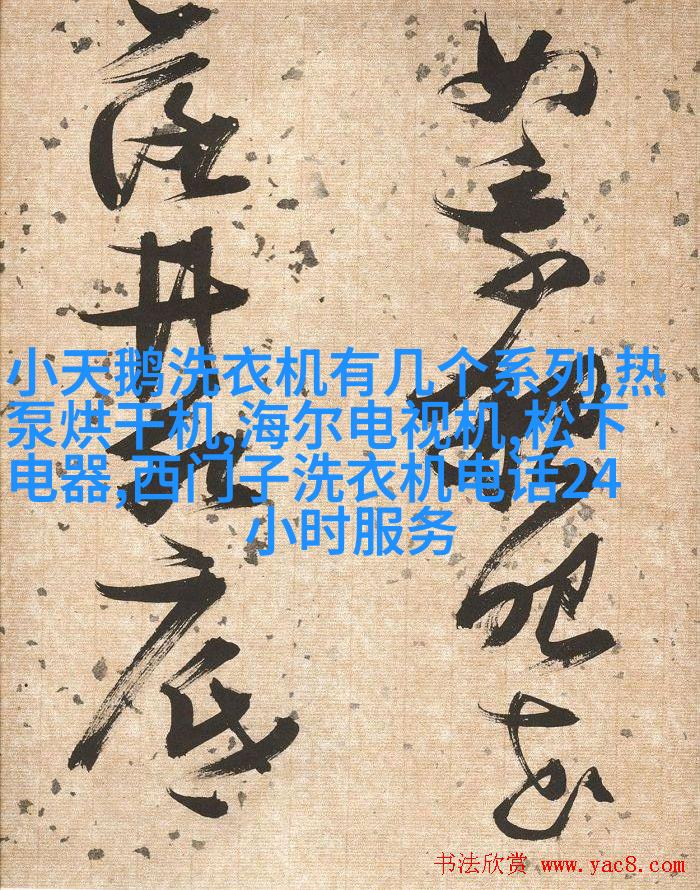 似乘船眼花
落井水底
小天鹅洗衣机有几个系列,热
泵烘干机,海尔电视机,松下
电器,西门子洗衣机电话24
小时服务
书法欣赏 www.yac8.com